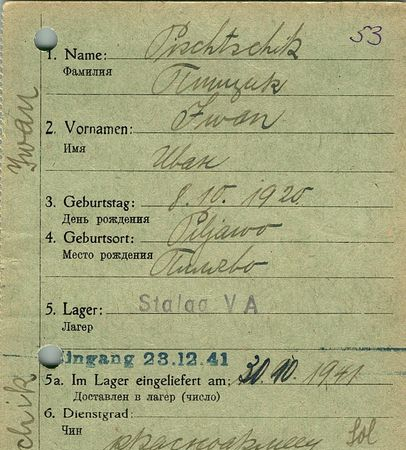 53
1. Name: Pischtschik
Фамилия Пищик
2. Vornamen: Iwan
Имя Иван
3. Geburtstag: 8.10.1920
День рождения
4. Geburtsort: Piljawo
Место рождения Пилево
5. Lager: Stalag VA
Лагер
Eingang 23.12.41
5a. Im Lager eingeliefert am: 30.10.1941
Доставлен в лагер (число)
6. Dienstgrad: Sol
Чин красноармеец
Iwan
chik